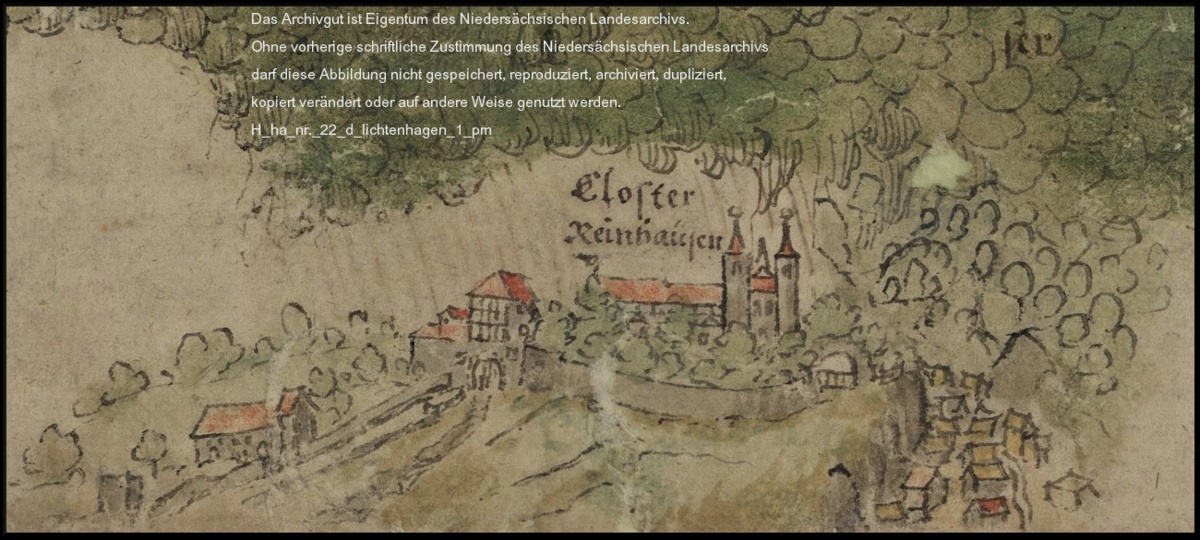 Das Archivgut ist Eigentum des Niedersächsischen Landesarchivs.
Ohne vorherige schriftliche Zustimmung des Niedersächsischen Landesarchivs
darf diese Abbildung nicht gespeichert, reproduziert, archiviert, dupliziert,
kopiert verändert oder auf andere Weise genutzt werden.
H_ha_nr._22_d_lichtenhagen_1_pm
ſer
Cloſter
Reinhauſen